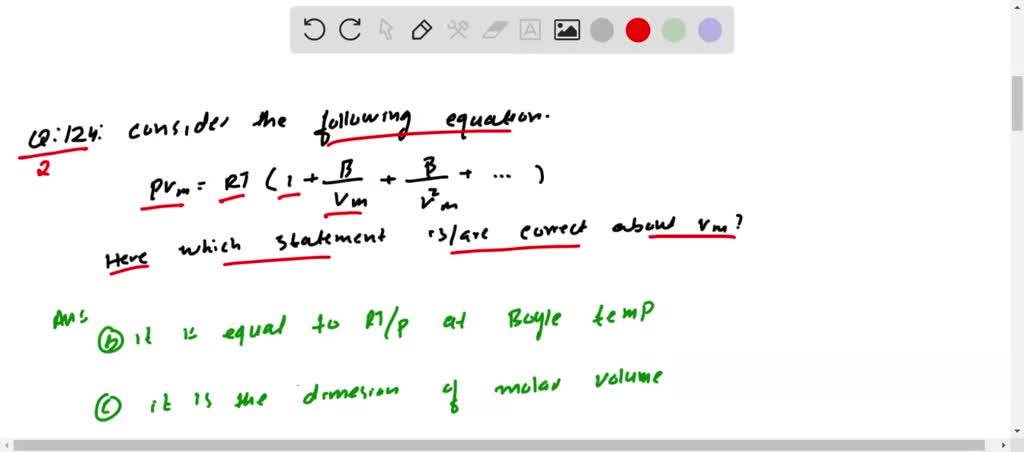 Q:124: consider the following equation.
2
PVm = RT (1 + B/Vm + B/V²m + ... )
Here which statement is/are correct about Vm?
Ans
(b) it is equal to RT/P at Boyle temp
(c) it is the dimesion of molar volume